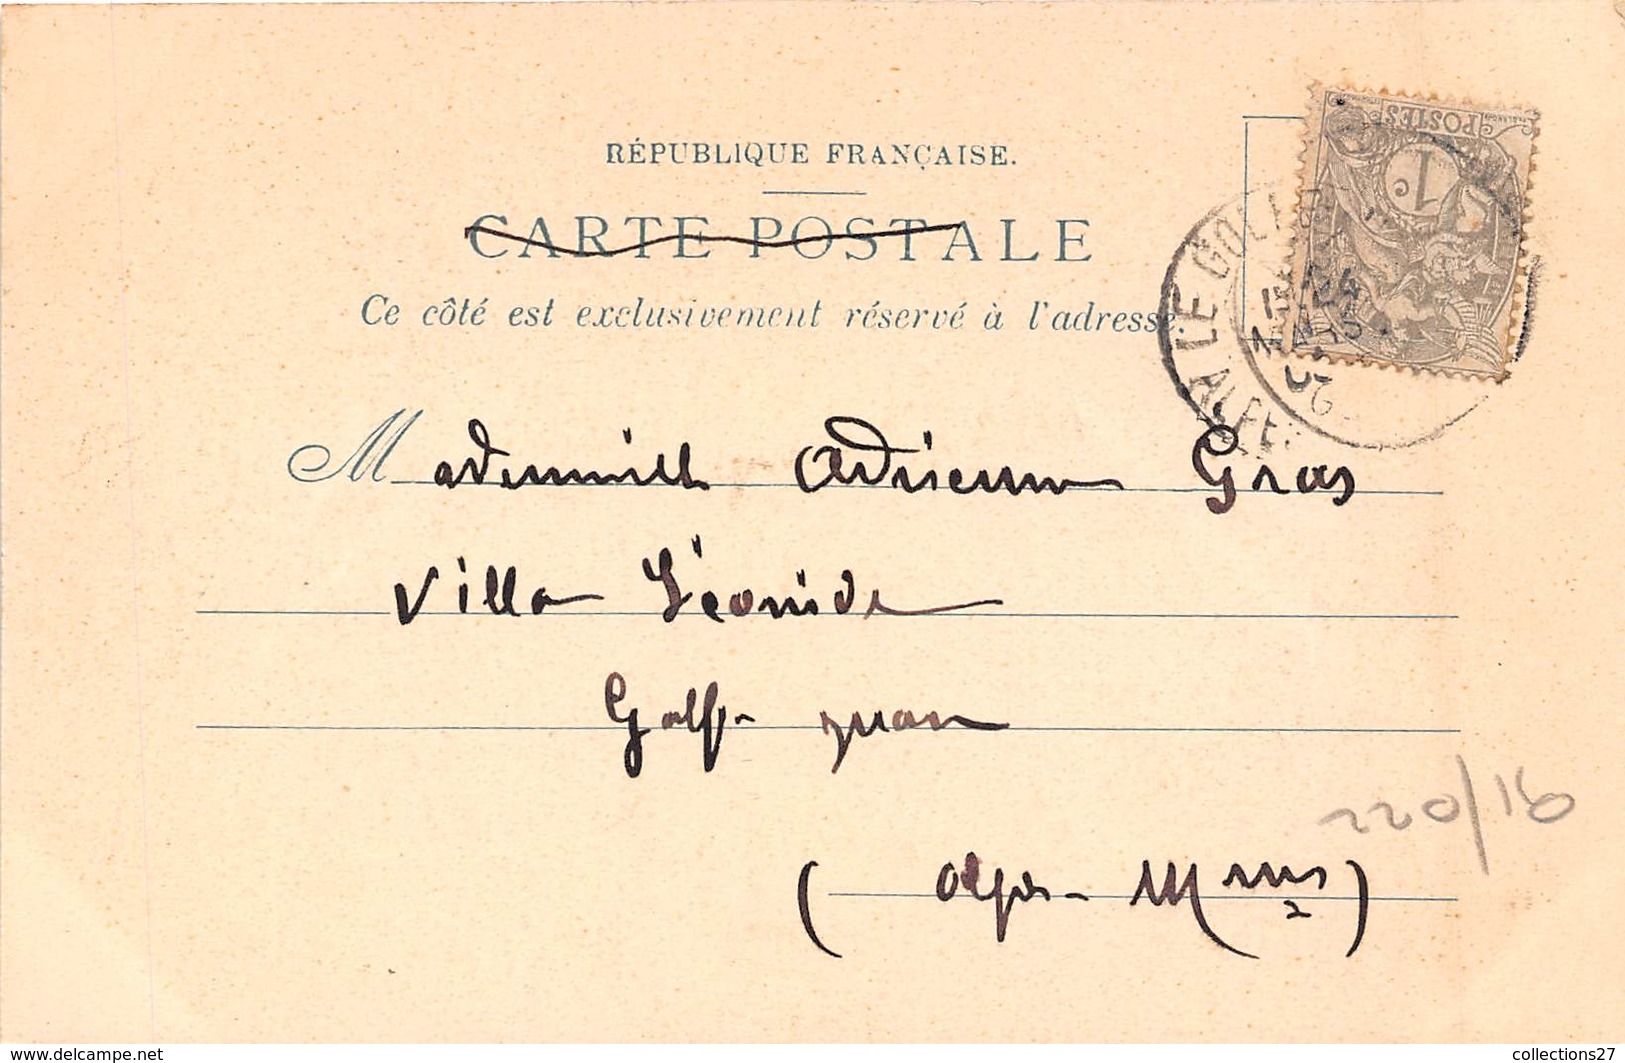 RÉPUBLIQUE FRANÇAISE.
CARTE POSTALE
Ce côté est exclusivement réservé à l'adresse.
POSTES
1c
LE GOLFE
24
MARS
Mademoiselle Adrienne Gras
Villa Léonide
Golfe-Juan
(Alpes-Mmes)
220/16
www.delcampe.net
collections27